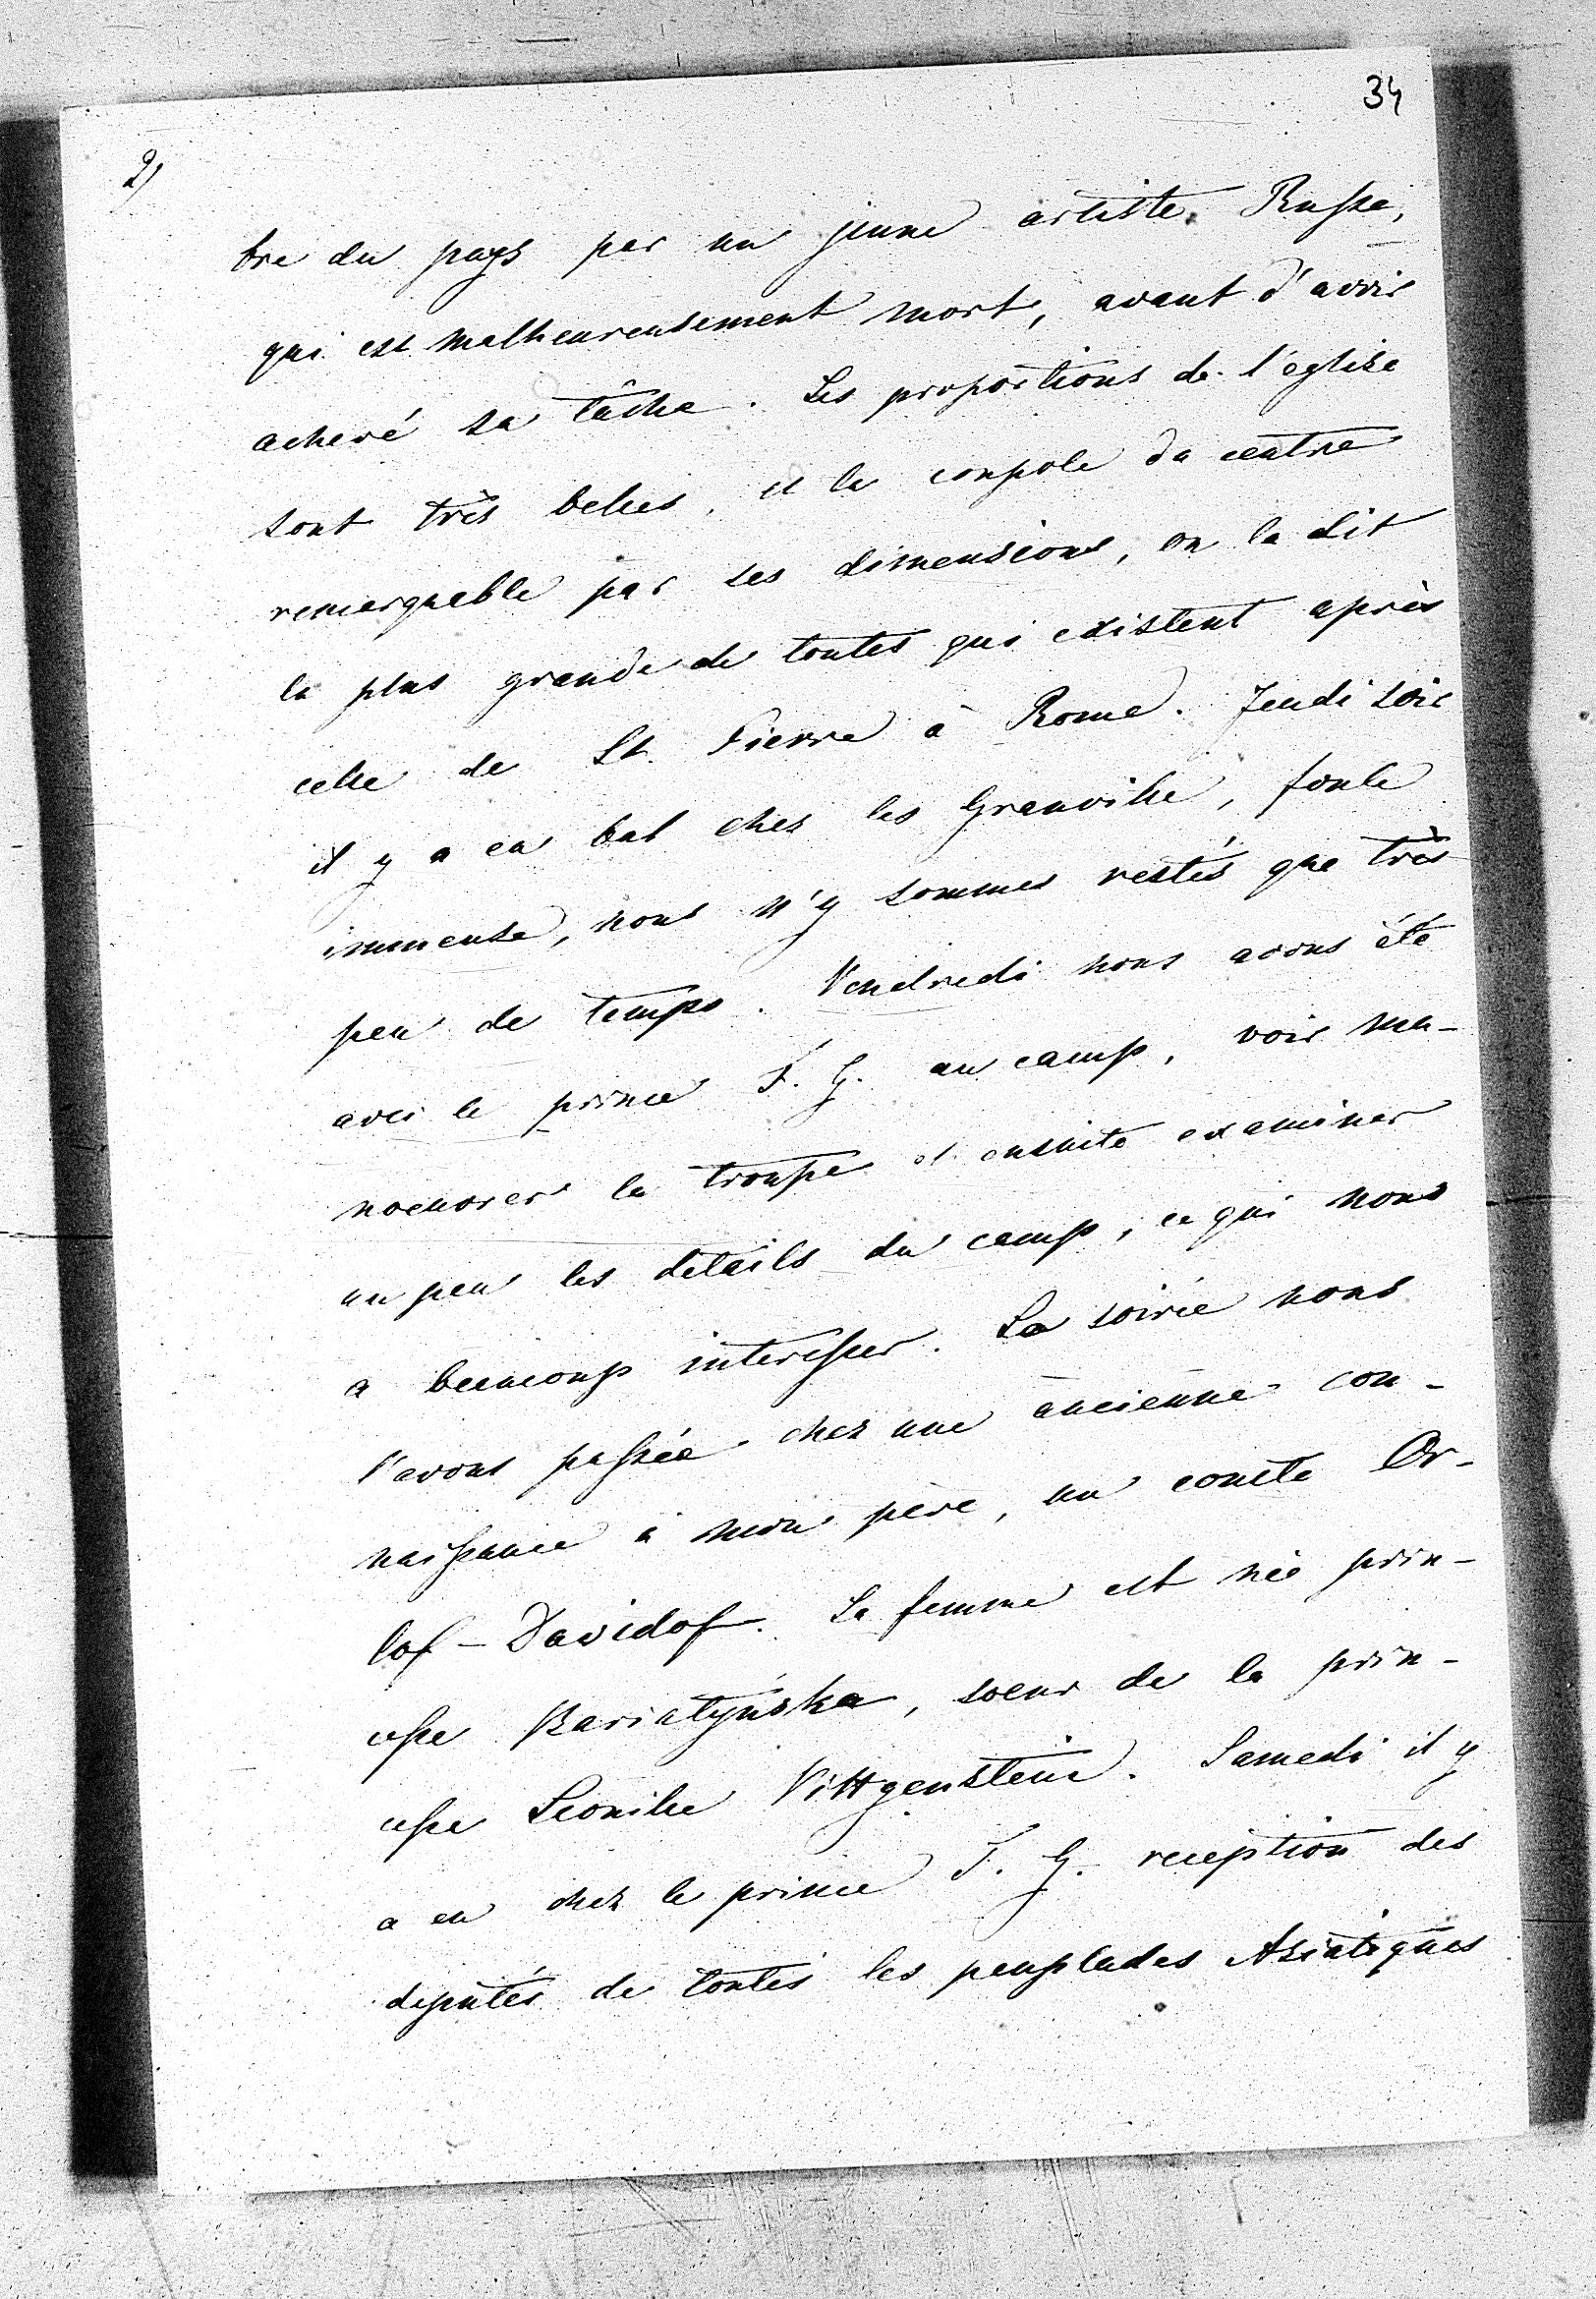 34
2)
bre du pays par un jeune artiste Russe,
qui est malheureusement mort, avant d'avoir
achevé sa tâche. Les proportions de l'église
sont très belles, et la coupole du centre
remarquable par ses dimensions, on la dit
la plus grande de toutes qui existent après
celle de St. Pierre à Rome. Jeudi soir
il y a eu bal chez les Granville, foule
immense, nous n'y sommes restés que très
peu de temps. Vendredi nous avons été
avec le prince F. G. au camp, voir ma-
noeuvrer la troupe et ensuite examiner
un peu les détails du camp, ce qui nous
a beaucoup interesser. La soirée nous
l'avons passée chez une ancienne con-
naissance à mon père, un comte Or-
lof-Davidof. Sa femme est née prin-
cesse Bariatyńska, soeur de la prin-
cesse Leonille Vittgenstein. Samedi il y
a eu chez le prince F. G. reception des
députés de toutes les peuplades Asiatiques